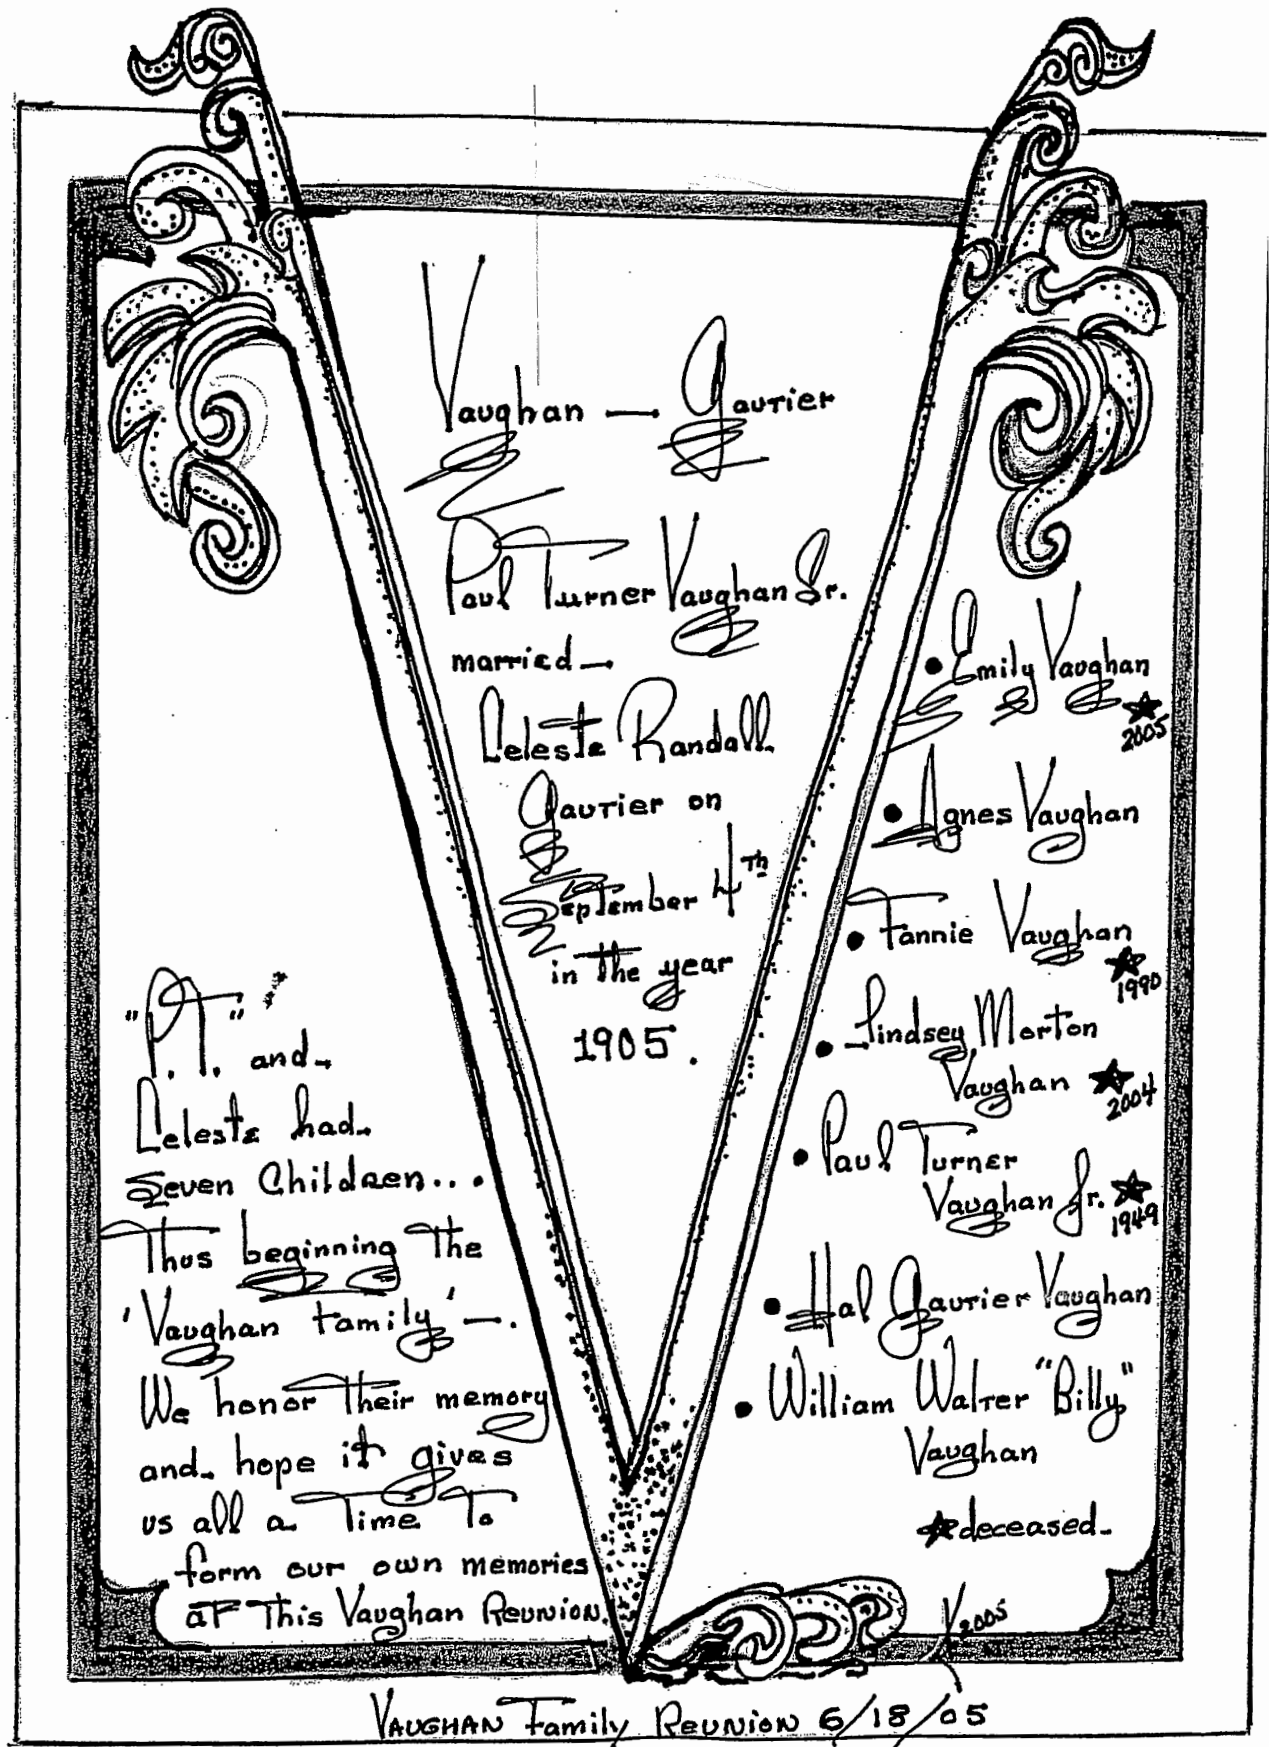 Vaughan — Gautier
Paul Turner Vaughan Sr.
married
Celeste Randall
Gautier on
September 4th
in the year
1905.
"P.T." and
Celeste had
Seven Children...
Thus beginning the
'Vaughan family' —.
We honor their memory
and hope it gives
us all a Time To
form our own memories
at This Vaughan Reunion.
• Emily Vaughan
★ 2005
• Agnes Vaughan
• Fannie Vaughan
★ 1990
• Lindsey Morton
Vaughan ★ 2004
• Paul Turner
Vaughan Jr. ★ 1949
• Hal Gautier Vaughan
• William Walter "Billy"
Vaughan
★ deceased
2005
Vaughan Family Reunion 6/18/05